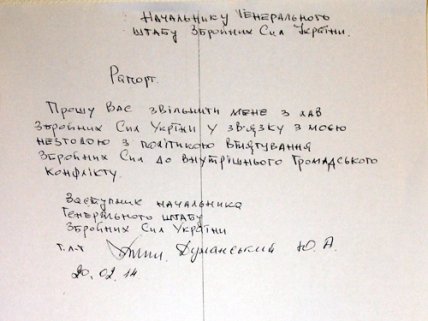 Начальнику Генерального
штабу Збройних Сил України.
Рапорт.
Прошу Вас звільнити мене з лав
Збройних Сил Укріни у зв'язку з моєю
незгодою з політикою втягування
Збройних Сил до внутрішнього громадського
конфлікту.
Заступник начальника
Генерального штабу
Збройних Сил України
г.л-т Думанський Ю. А.
20.02.14